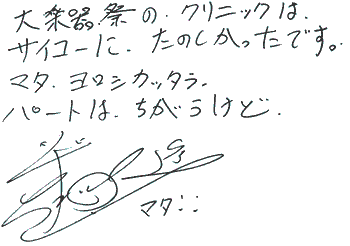 大楽器祭の.クリニックは.
サイコーに.たのしかったです。
マタ.ヨロシカッタラ.
パートは.ちがうけど.
マタ!!